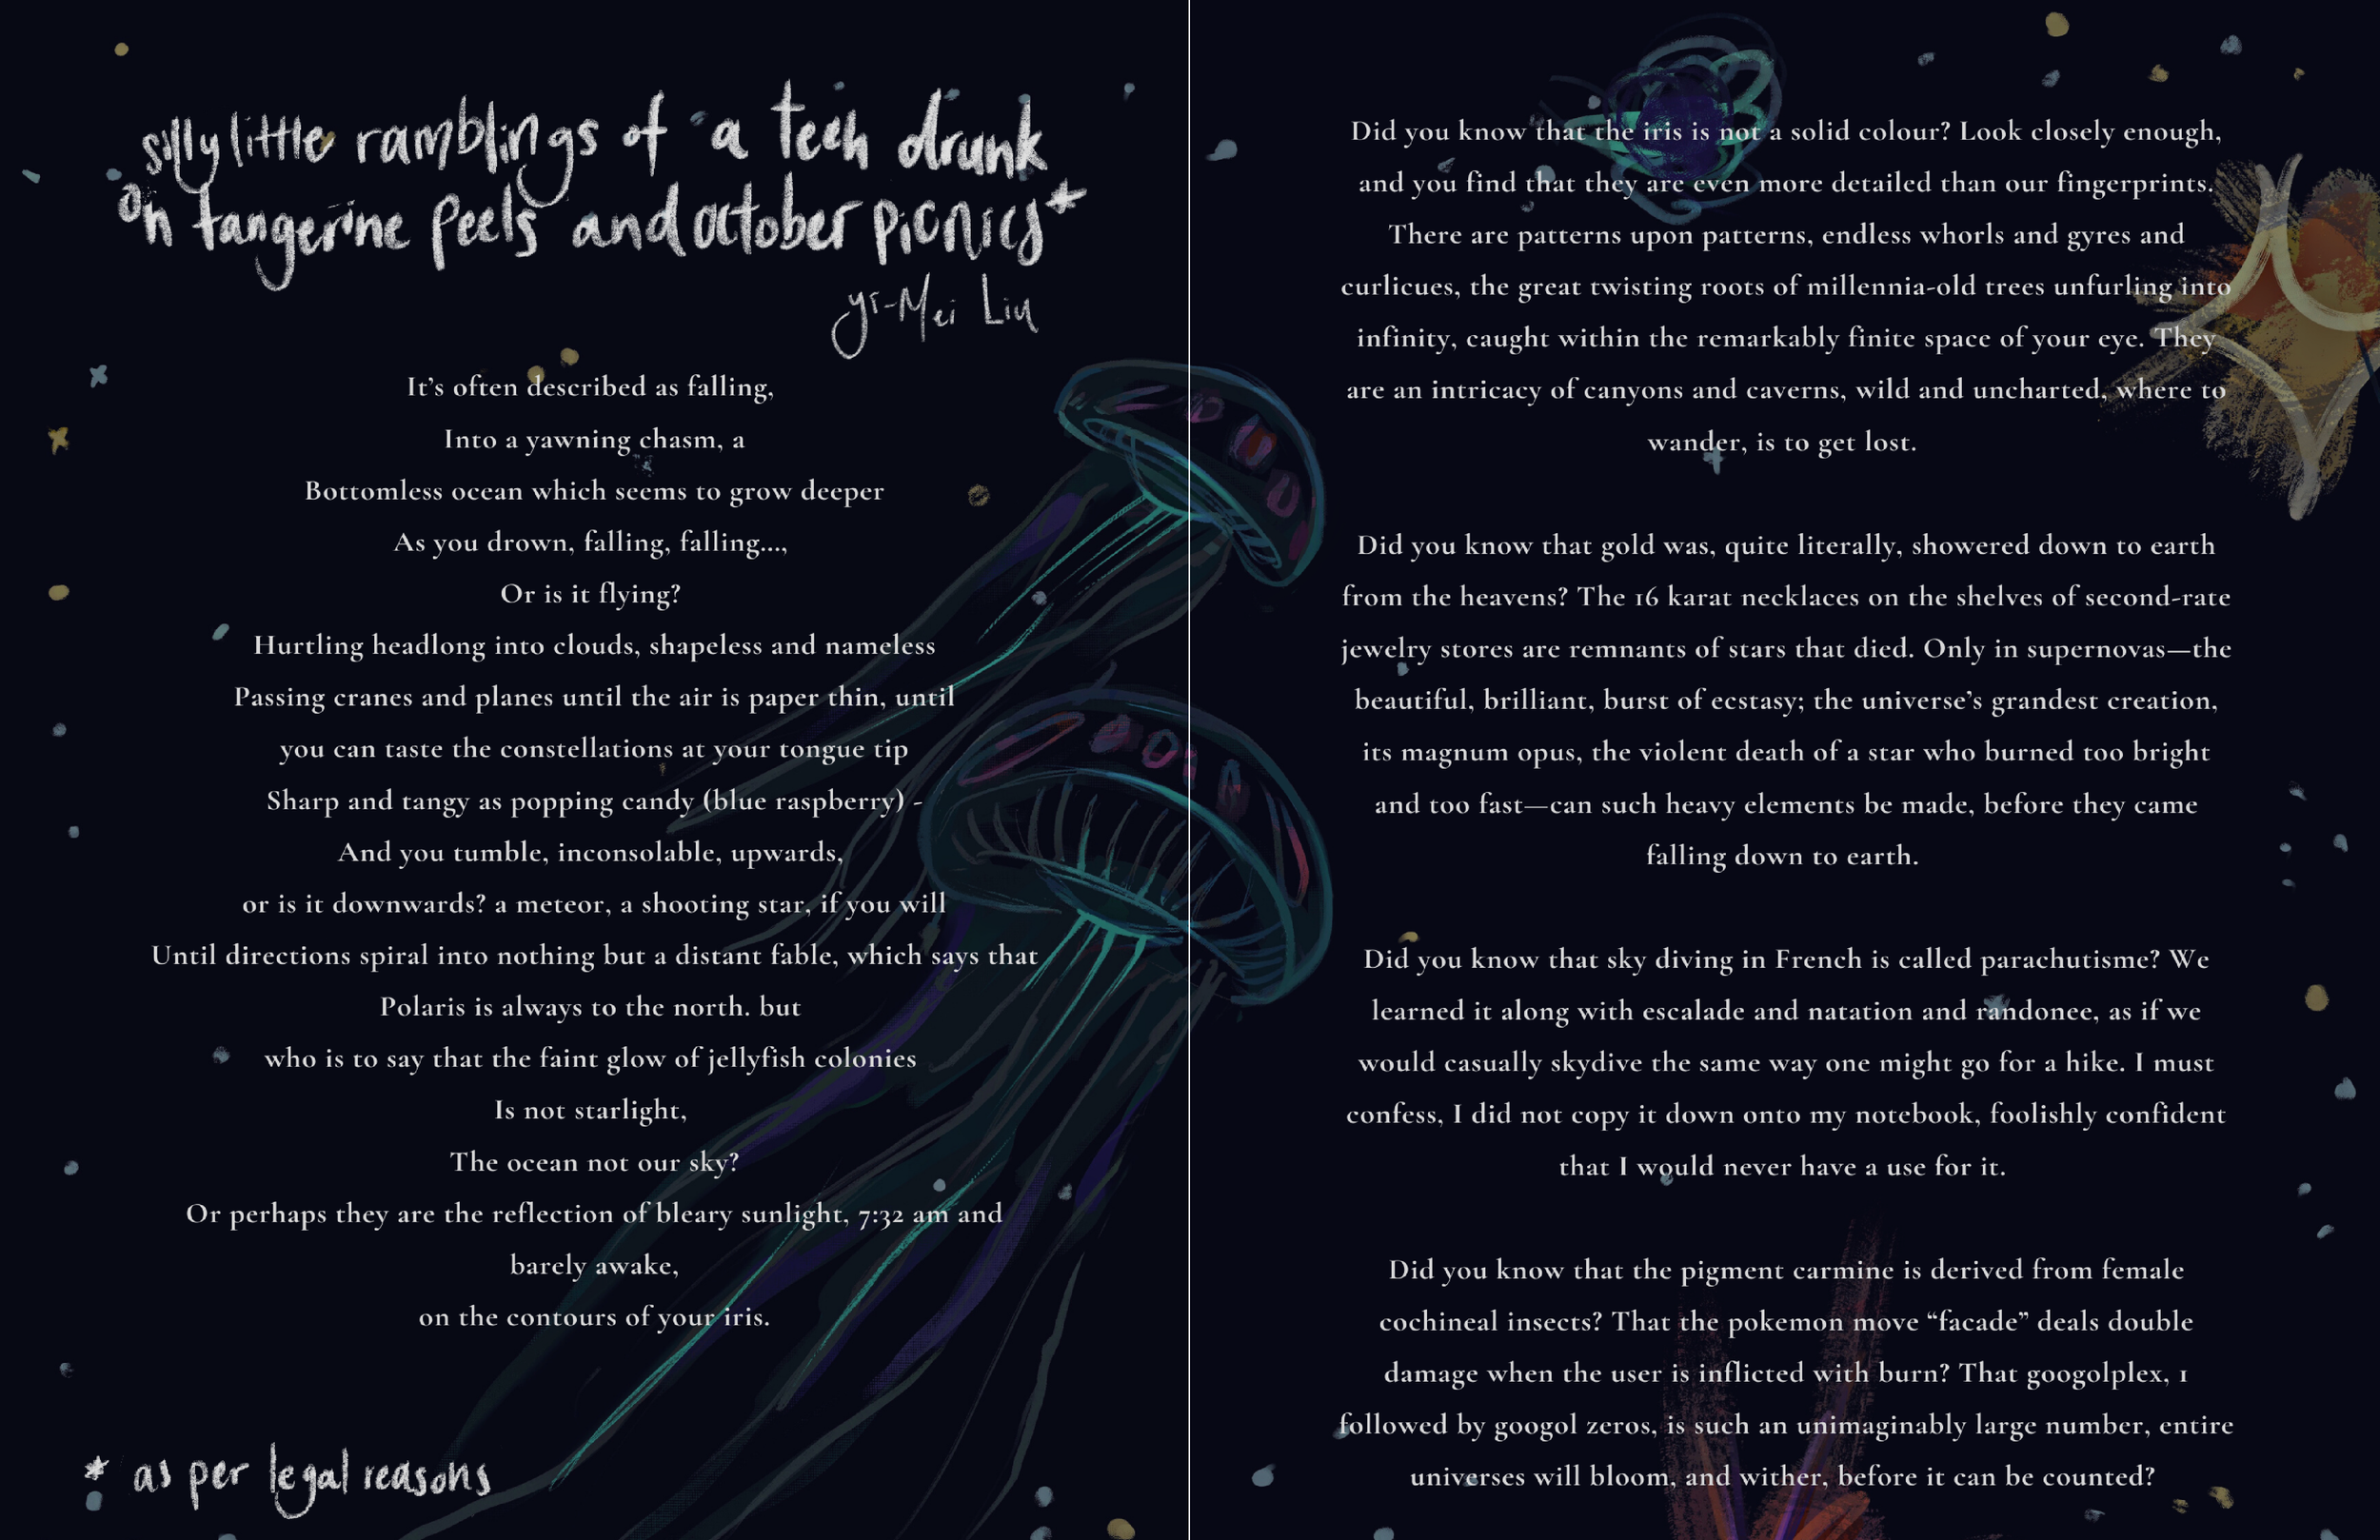 silly little ramblings of a teen drunk
on tangerine peels and october picnics*
yi-Mei Liu
It's often described as falling,
Into a yawning chasm, a
Bottomless ocean which seems to grow deeper
As you drown, falling, falling...,
Or is it flying?
Hurtling headlong into clouds, shapeless and nameless
Passing cranes and planes until the air is paper thin, until
you can taste the constellations at your tongue tip
Sharp and tangy as popping candy (blue raspberry) -
And you tumble, inconsolable, upwards,
or is it downwards? a meteor, a shooting star, if you will
Until directions spiral into nothing but a distant fable, which says that
Polaris is always to the north. but
who is to say that the faint glow of jellyfish colonies
Is not starlight,
The ocean not our sky?
Or perhaps they are the reflection of bleary sunlight, 7:32 am and
barely awake,
on the contours of your iris.
* as per legal reasons
Did you know that the iris is not a solid colour? Look closely enough,
and you find that they are even more detailed than our fingerprints.
There are patterns upon patterns, endless whorls and gyres and
curlicues, the great twisting roots of millennia-old trees unfurling into
infinity, caught within the remarkably finite space of your eye. They
are an intricacy of canyons and caverns, wild and uncharted, where to
wander, is to get lost.
Did you know that gold was, quite literally, showered down to earth
from the heavens? The 16 karat necklaces on the shelves of second-rate
jewelry stores are remnants of stars that died. Only in supernovas—the
beautiful, brilliant, burst of ecstasy; the universe's grandest creation,
its magnum opus, the violent death of a star who burned too bright
and too fast—can such heavy elements be made, before they came
falling down to earth.
Did you know that sky diving in French is called parachutisme? We
learned it along with escalade and natation and randonee, as if we
would casually skydive the same way one might go for a hike. I must
confess, I did not copy it down onto my notebook, foolishly confident
that I would never have a use for it.
Did you know that the pigment carmine is derived from female
cochineal insects? That the pokemon move “facade” deals double
damage when the user is inflicted with burn? That googolplex, 1
followed by googol zeros, is such an unimaginably large number, entire
universes will bloom, and wither, before it can be counted?